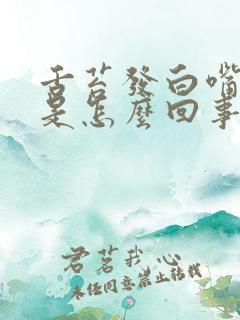 舌苔發白嘴
是怎麼回事
君茗我心
未经同意禁止转载